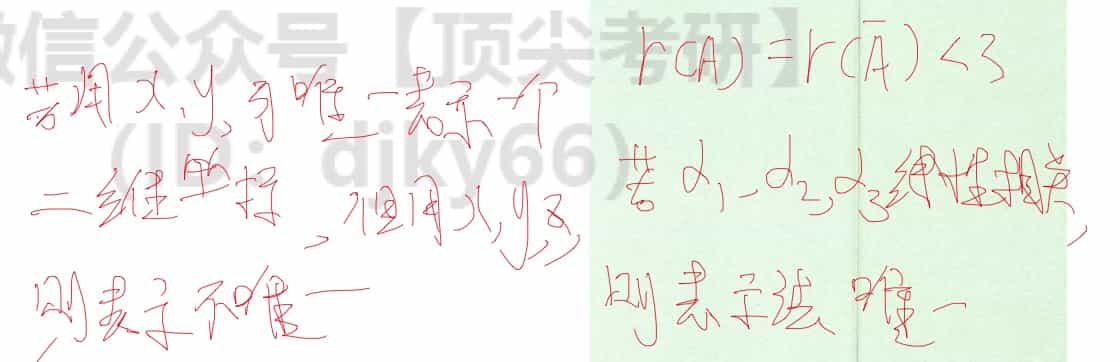 微信公众号【顶尖考研】
(ID: djky66)
若用x,y,可唯一表示一个
二维坐标,但用x,y,z,
则表示不唯一
r(A)=r(Ā)<3
若α₁,α₂,α₃线性相关,
则表示法唯一